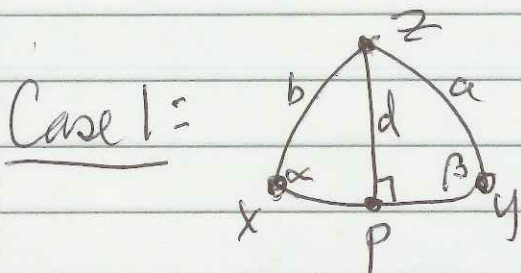 Case 1:
z
b
a
d
α
β
x
y
p